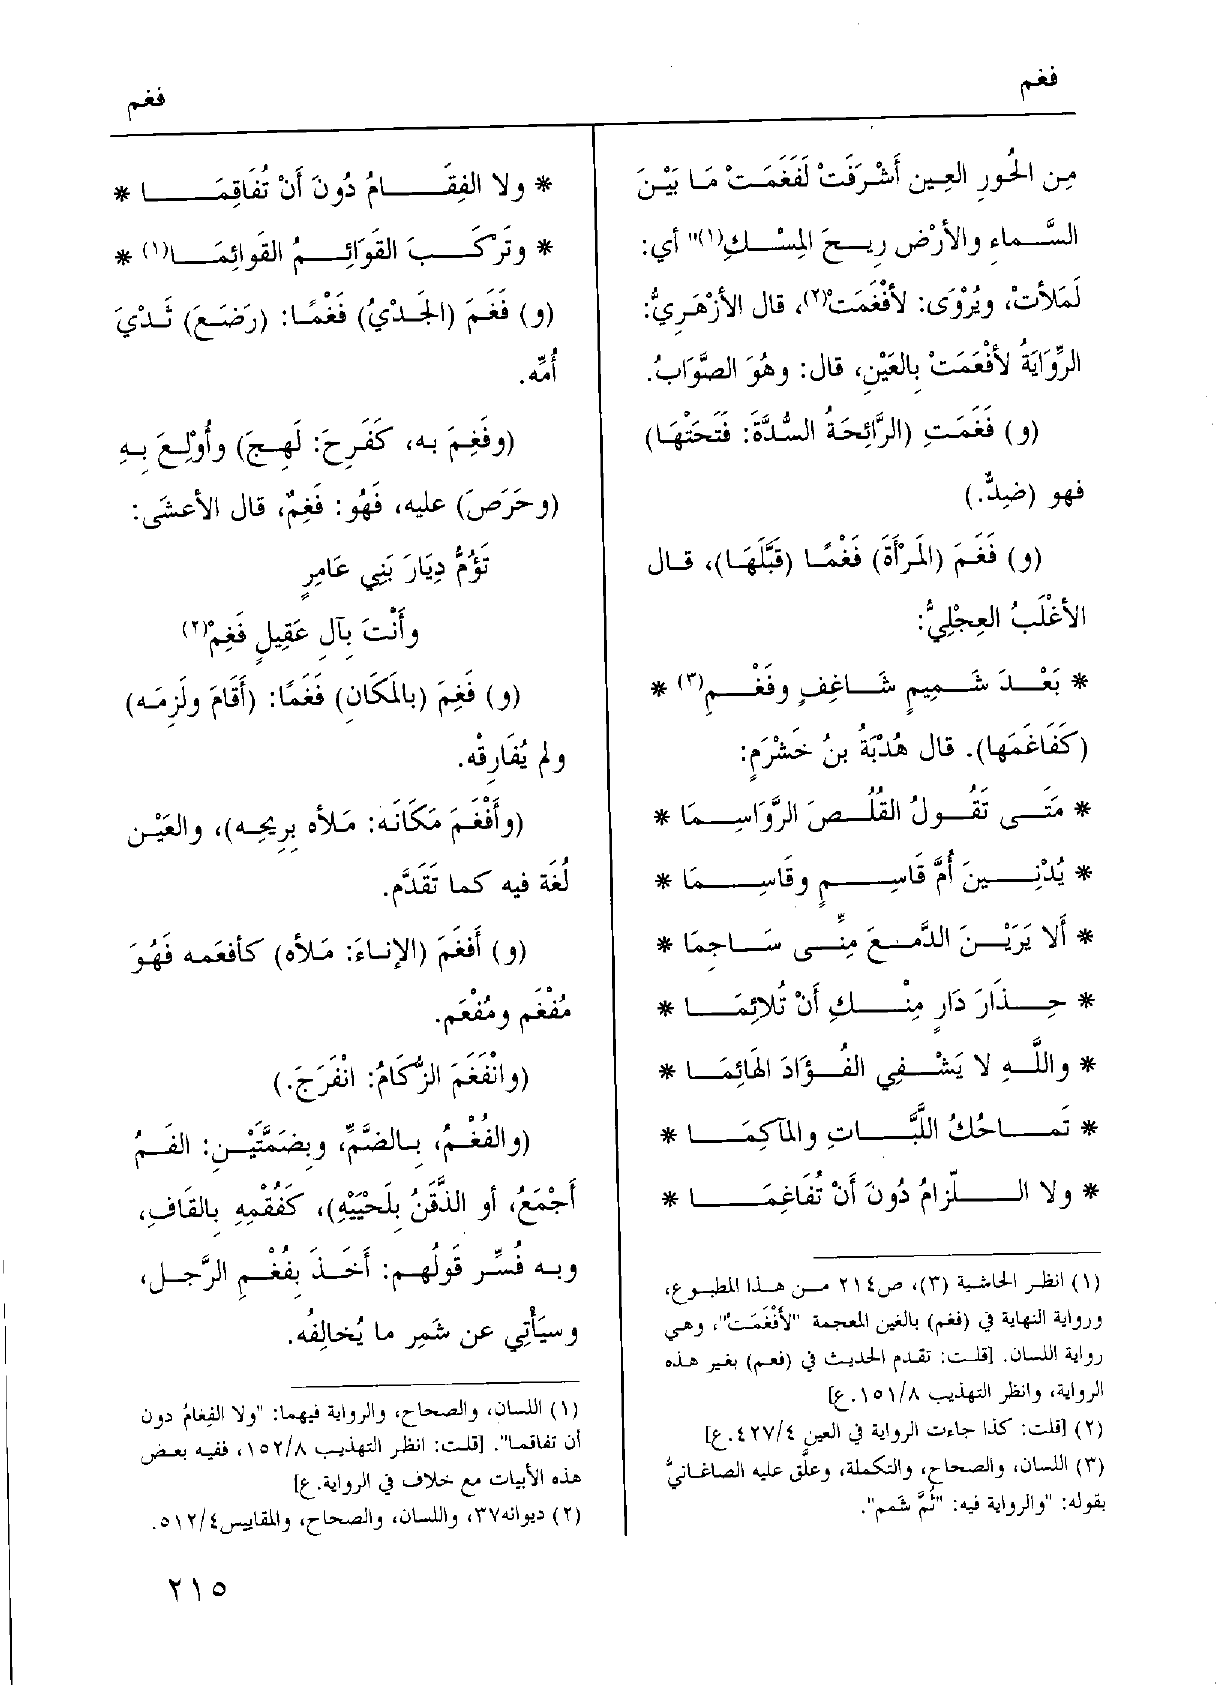 فغم
فغم
مِن الحُورِ العِين أَشْرَفَتْ لَفَغَمَتْ مَا بَيْنَ
السَّماءِ والأرْضِ رِيحَ المِسْكِ(١)" أي:
لَمَلأتْ، ويُرْوَى: لأَفْغَمَتْ(٢)، قال الأزْهَرِيُّ:
الرِّوَايَةُ لأَفْعَمَتْ بِالعَيْنِ، قال: وهُوَ الصَّوَابُ.
(و) فَغَمَتِ (الرَّائِحَةُ السُّدَّةَ: فَتَحَتْهَا)
فهو (ضِدٌّ.)
(و) فَغَمَ (المَرْأَةَ) فَغْمًا (قَبَّلَهَا)، قال
الأغْلَبُ العِجْلِيُّ:
* بَعْدَ شَمِيمٍ شَاغِفٍ وفَغْمِ(٣) *
(كَفَاغَمَها). قال هُدْبَةُ بنُ خَشْرَمٍ:
* مَتَى تَقُولُ القُلُصَ الرَّوَاسِمَا *
* يُدْنِينَ أُمَّ قَاسِمٍ وقَاسِمَا *
* أَلا يَرَيْنَ الدَّمعَ مِنِّي سَاجِمَا *
* حِذَارَ دَارٍ مِنْكِ أَنْ تُلائِمَا *
* واللَّهِ لا يَشْفِي الفُؤَادَ الهَائِمَا *
* تَمَاحُكُ اللَّبَّاتِ والمآكِمَا *
* ولا اللِّزامُ دُونَ أَنْ تُفَاغِمَا *
(١) انظر الحاشية (٣)، ص٢١٤ من هذا المطبوع،
ورواية النهاية في (فغم) بالغين المعجمة "لأَفْغَمَتْ"، وهي
رواية اللسان. [قلت: تقدم الحديث في (فعم) بغير هذه
الرواية، وانظر التهذيب ١٥١/٨.ع]
(٢) [قلت: كذا جاءت الرواية في العين ٤٢٧/٤.ع]
(٣) اللسان، والصحاح، والتكملة، وعلَّق عليه الصاغانيُّ
بقوله: "والرواية فيه: "ثُمَّ شَمم".
* ولا الفِقَامُ دُونَ أَنْ تُفَاقِمَا *
* وتَرْكَبَ القَوَائِمُ القَوائِمَا(١) *
(و) فَغَمَ (الجَدْيُ) فَغْمًا: (رَضَعَ) ثَدْيَ
أُمِّه.
(وفَغِمَ به، كَفَرِحَ: لَهِجَ) وأُوْلِعَ بِهِ
(وحَرَصَ) عليه، فَهُو: فَغِمٌ، قال الأعشَى:
تَؤُمُّ دِيَارَ بَنِي عَامِرٍ
وأَنْتَ بِآلِ عَقِيلٍ فَغِمْ(٢)
(و) فَغِمَ (بالمَكَانِ) فَغَمًا: (أَقَامَ ولَزِمَه)
ولم يُفَارِقْه.
(وأَفْغَمَ مَكَانَه: مَلأه بِرِيحِه)، والعَيْن
لُغَة فيه كما تَقَدَّم.
(و) أَفغَمَ (الإناءَ: مَلأه) كأفعَمه فَهُوَ
مُفْغَم ومُفْعَم.
(وانْفَغَمَ الزُّكَامُ: انْفَرَجَ.)
(والفُغْمُ، بالضَّمِّ، وبِضَمَّتَيْنِ: الفَمُ
أَجْمَعُ، أو الذَّقَنُ بِلَحْيَيْهِ)، كَفُقْمِهِ بالقَافِ،
وبه فُسِّر قَولُهم: أَخَذَ بِفُغْمِ الرَّجلِ،
وسيَأْتِي عن شَمِرِ ما يُخالِفُه.
(١) اللسان، والصحاح، والرواية فيهما: "ولا الفِغامُ دون
أن تفاقما". [قلت: انظر التهذيب ١٥٢/٨، ففيه بعض
هذه الأبيات مع خلاف في الرواية.ع]
(٢) ديوانه٣٧، واللسان، والصحاح، والمقاييس٥١٢/٤.
٢١٥